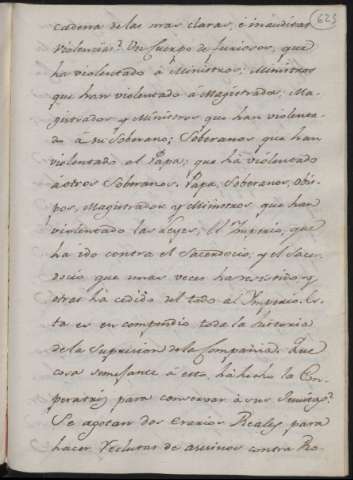 625
cadena de las mas claras, e inauditas
violencias? Un Cuerpo de furiosos, que
ha violentado à Ministros; Ministros
que han violentado á Magistrados; Ma-
gistrados y Ministros que han violenta-
do à su Soberano; Soberanos que han
violentado al Papa; que ha violentado
à otros Soberanos. Papa, Soberanos, Obis-
pos, Magistrados y Ministros que han
violentado las Leyes; el Imperio, que
ha ido contra el Sacerdocio; y el Sacer-
docio que unas veces ha resistido, y
otras ha cedido del todo al Imperio. Es-
ta es en compendio toda la historia
de la Supresion de la Compañia. Que
cosa semejante á esto ha hecho la
para conservar à sus Jesuitas?
Se agotan dos Erarios Reales para
hacer reclutas de asesinos contra